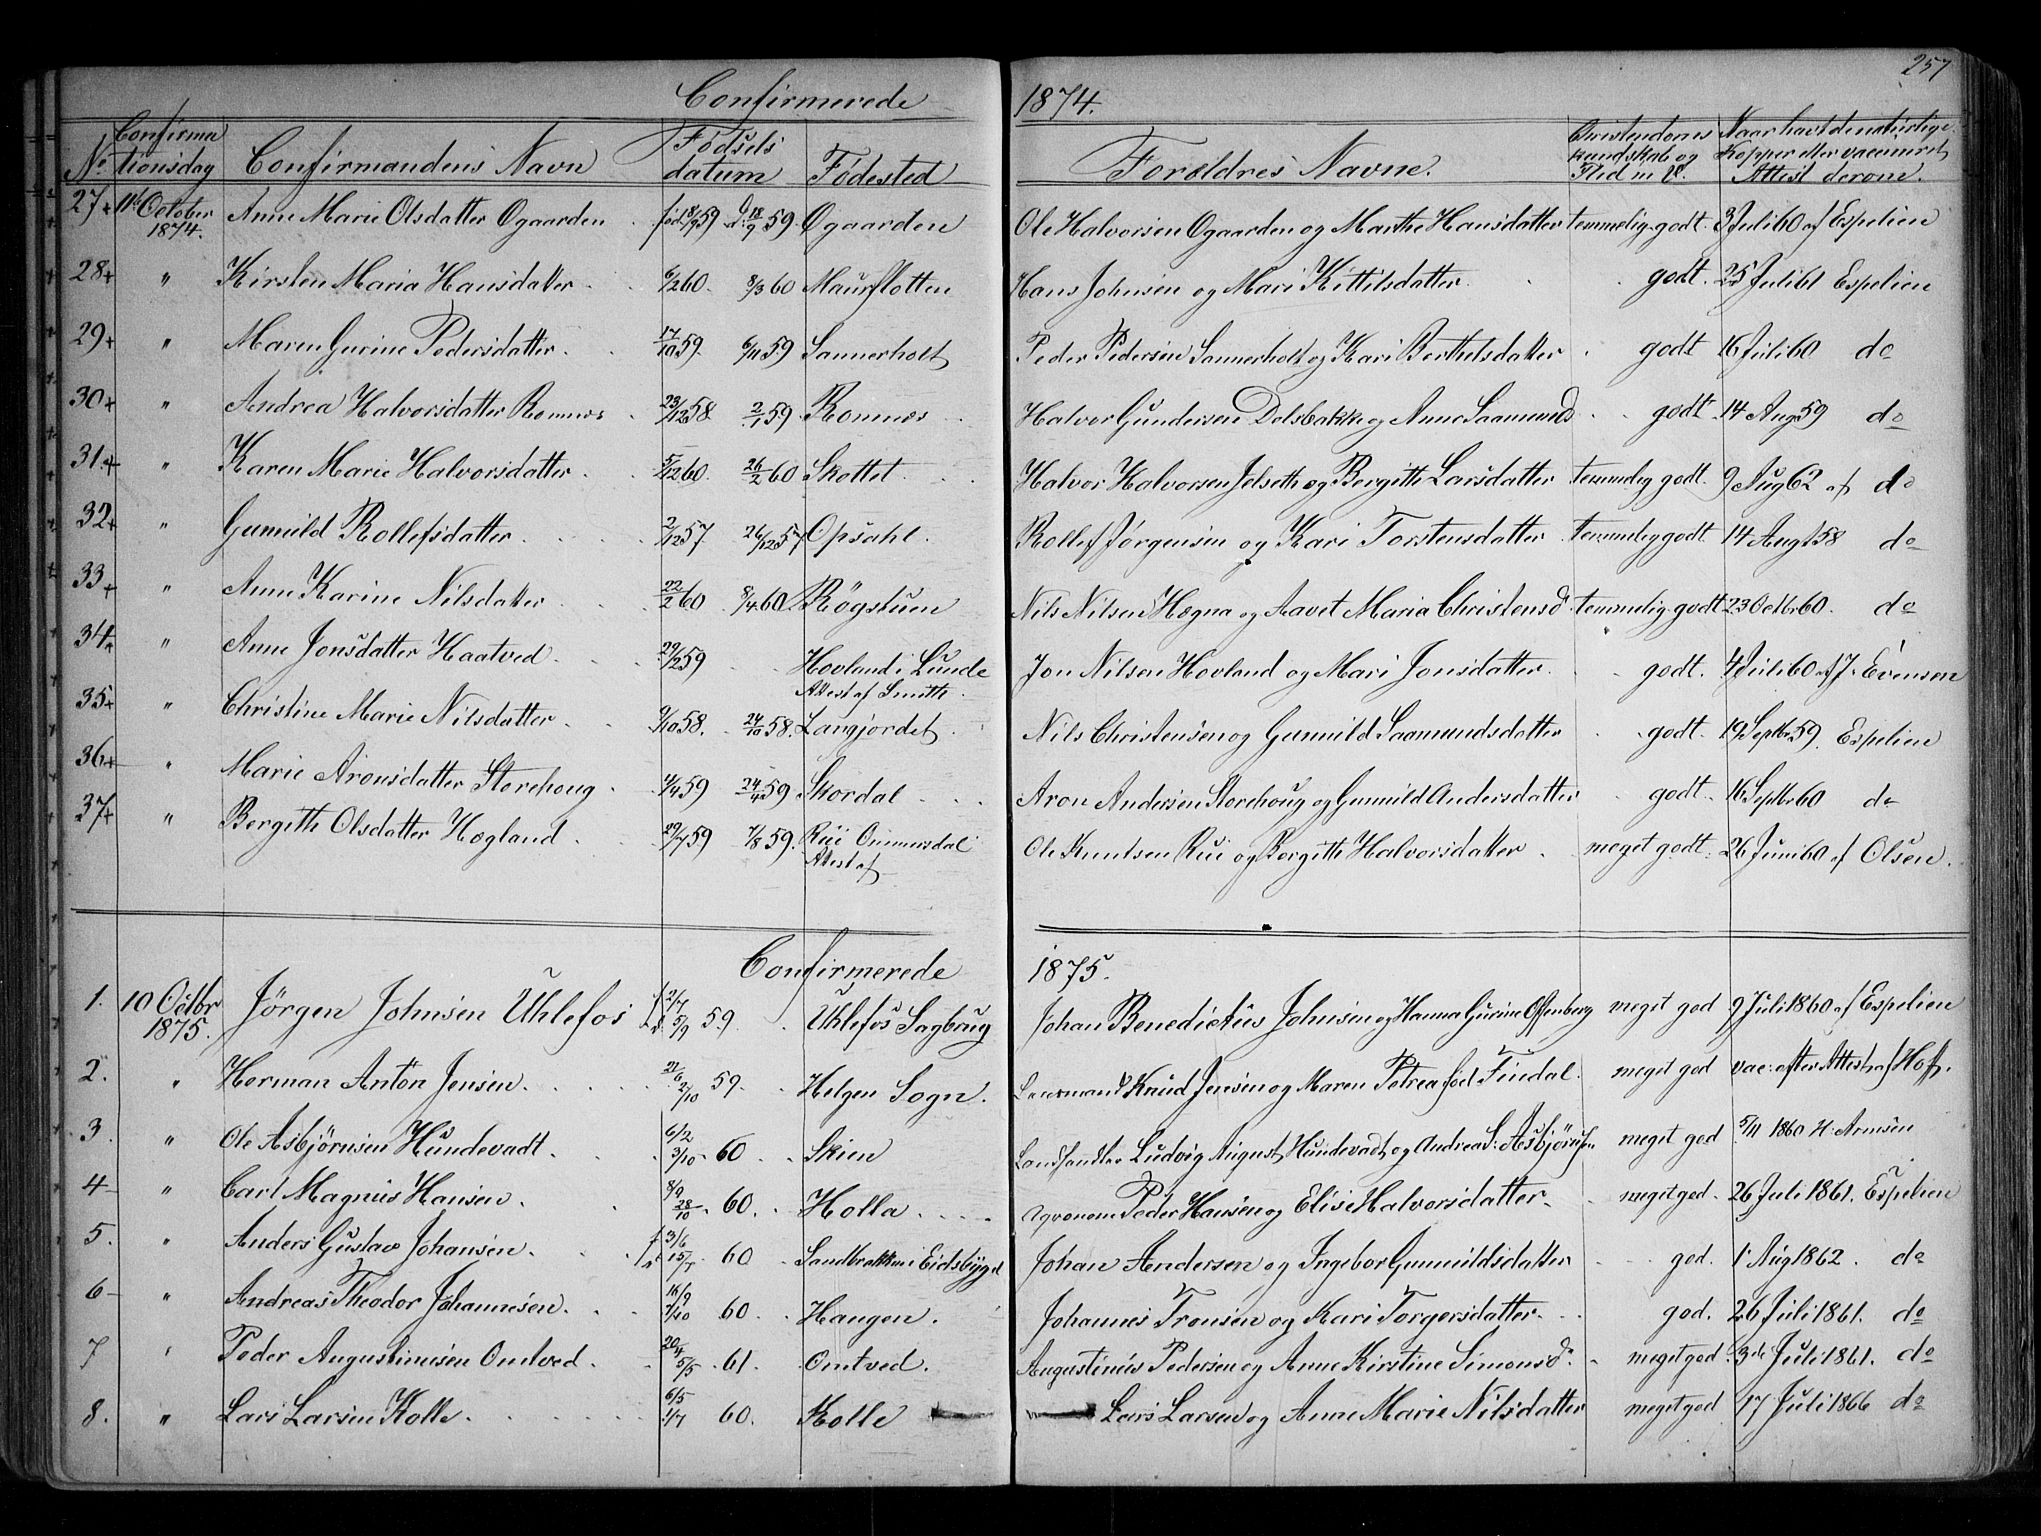 257
Confirmerede 1874.
No Confirmationsdag Confirmandens Navn Fødsels datum Fødested Forældres Navne. Christendoms kundskab og Flid m. V. Naar havt de naturlige Kopper eller vaccineret Attest derom.
27 11te October 1874. Anne Marie Olsdatter Øgaarden fød 18/8 59 D. 18/9 59. Øgaarden Ole Halvorsen Øgaarden og Marthe Hansdatter temmelig godt. 3 Juli 60 af Espelien
28 " Kirsten Maria Hansdatter 6/2 60. 8/3 60 Maurflotten Hans Johnsen og Mari Kittilsdatter. godt. 25 Juli 61 Espelien
29 " Maren Gurine Pedersdatter. 17/10 59. 6/11 59 Sannerholt Peder Pedersen Sannerholt og Kari Berthelsdatter godt 16 Juli 60 do
30 " Andrea Halvorsdatter Romnes 23/12 58 2/1 59. Romnes Halvor Gundersen Dalsbakke og Anne Saamundsd godt 14 Aug 59 do
31. " Karen Marie Halvorsdatter 5/12 60. 26/2 60 Skottet. Halvor Halvorsen Jelseth og Bergith Larsdatter temmelig godt. 9 Aug 62 af do
32 " Gunuld Rollefsdatter. 2/12 57 26/12 57 Opsahl. Rollef Jørgensen og Kari Torstensdatter temmelig godt. 14 Aug 58 do
33 " Anne Karine Nilsdatter 22/2 60 8/4 60. Røgstuen Nils Nilsen Hægna og Aavet Maria Christensd. temmelig godt 23 Octbr 60. do
34 " Anne Jonsdatter Haatved 29/12 59 Hovland i Lunde Attest af Smith. Jon Nilsen Hovland og Mari Jonsdatter. godt. 4 Juli 60 af J. Evensen
35 " Christine Marie Nilsdatter. 9/10 58. 24/10 58. Langjordet. Nils Christensen og Gunuld Saamundsdatter godt. 19 Septbr 59. Espelien
36 " Marie Aronsdatter Storehoug 4/4 59 24/4 59 Skordal Aron Andersen Storehoug og Gunuld Andersdatter godt. 16 Septbr 60 do
37 " Bergith Olsdatter Hægland. 29/7 59 7/8 59. Rui Gunnersdal Attest af Ole Knutsen Rui og Bergith Halvorsdatter. meget godt. 26 Juni 60 af Olsen.
Confirmerede 1875.
1. 10 Octbr 1875. Jörgen Johnsen Uhlefos f 2/7 d. 5/9 59. Uhlefos Sagbrug Johan Benedictus Johnsen og Hanna Gurine Offenberg meget god 9 Juli 1860 af Espelien
2. " Herman Anton Jensen. 21/6 2/10 59. Helgen Sogn. Knud Jensen og Maren Petrea fød Findal. meget god vac. efter Attest af Hoff.
3. " Ole Asbjørnsen Hundevadt. 6/2 3/10 60 Skien Landhandler Ludvig August Hundevadt og Andrea S. Asbjörnsen meget god 5/11 1860 H. Arnsen
4 " Carl Magnus Hansen. 8/9 28/10 60. Holla Agronom Peder Hansen og Elise Halvorsdatter. meget god. 26 Juli 1861. Espelien
5. " Anders Gustav Johansen. f 3/6 d 15/7 60 Sandbrakken i Eidsbygd Johan Andersen og Ingebor Gunnildsdatter god. 1 Aug 1862. do
6 " Andreas Theodor Johannesen. 16/9 7/10 60 Haugen. Johannes Tronsen og Kari Torgersdatter. god. 26 Juli 1861. do
7 " Peder Augustinusen Omtved. 20/4 5/5 61. Omtved. Augustinus Pedersen og Anne Kirstine Simonsd. meget god. 3de Juli 1861. do
8. " Lars Larsen Kolle. 6/5 1/7 60. Kolle Lars Larsen og Anne Marie Nilsdatter meget god 17 Juli 1866 do